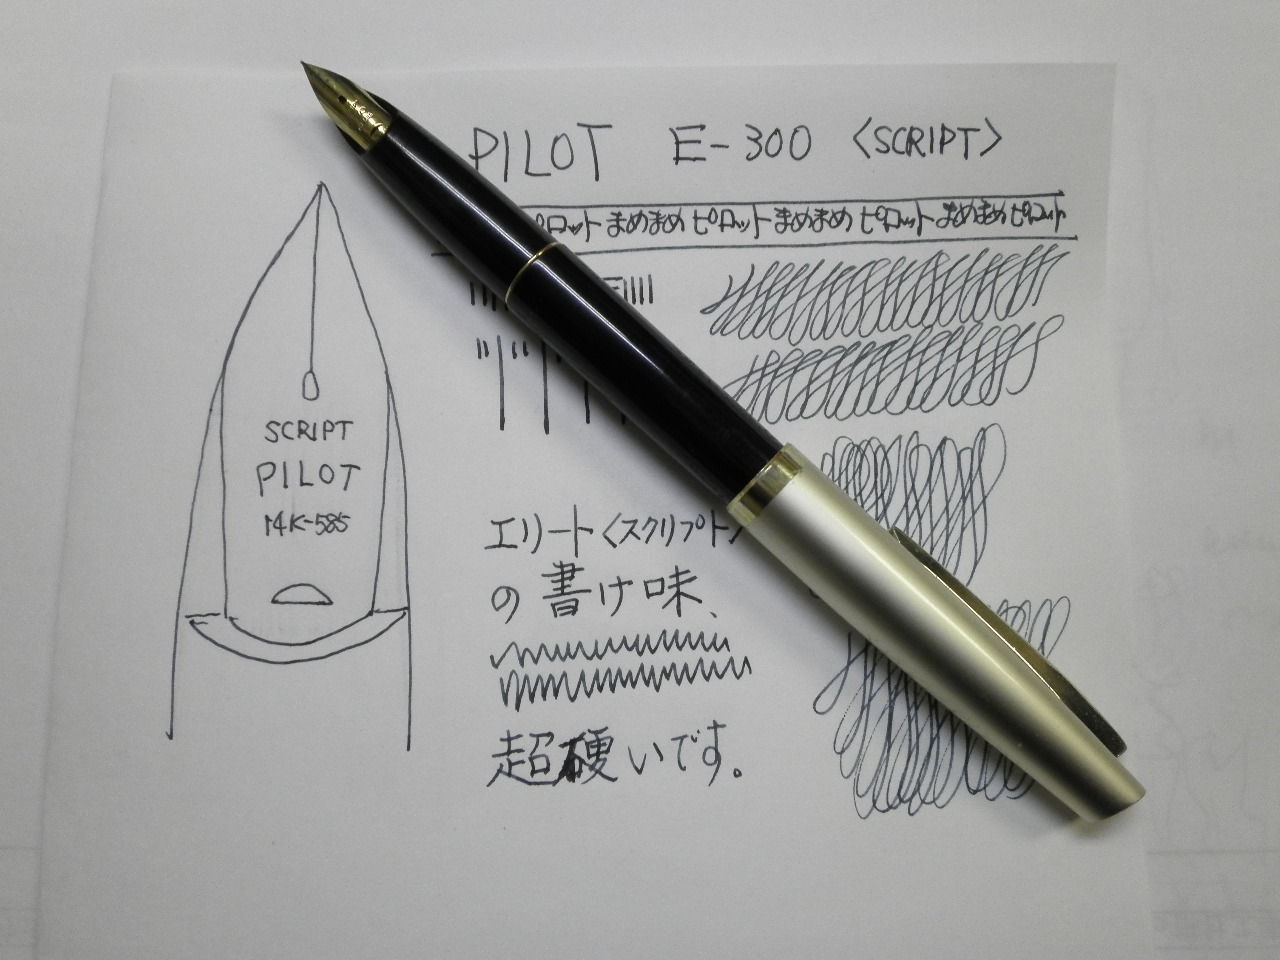 PILOT E-300 〈SCRIPT〉
ピロットまめまめピロットまめまめピロットまめまめピロット
SCRIPT
PILOT
14K-585
エリート〈スクリプト〉
の書け味、
超硬いです。